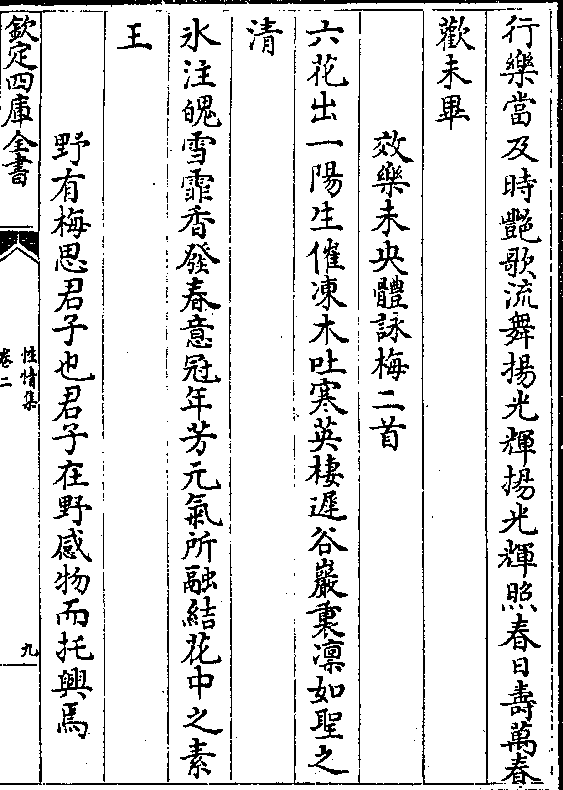 行樂當及時艷歌流舞揚光輝揚光輝照春日壽萬春
歡未畢
效樂未央體詠梅二首
六花出一陽生催凍木吐寒英棲遲谷巖裏凛如聖之
清
氷注魄雪霏香發春意冠年芳元氣所融結花中之素
王
野有梅思君子也君子在野感物而托興焉
欽定四庫全書
性情集
卷二
九